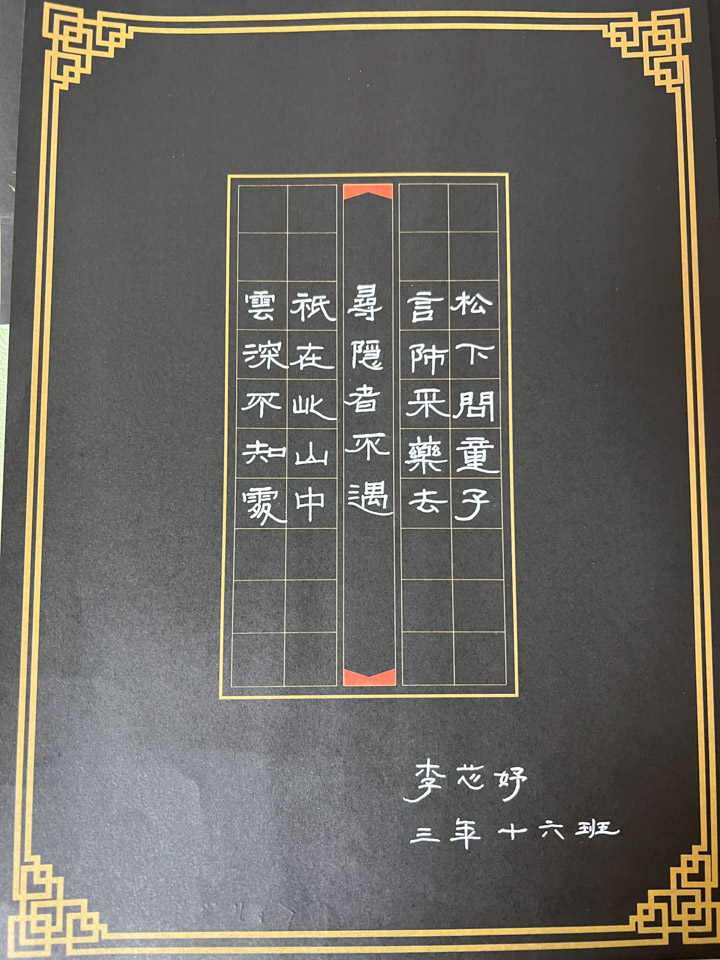 松下問童子
言師采藥去
尋隱者不遇
祇在此山中
雲深不知處
李芯妤
三年十六班